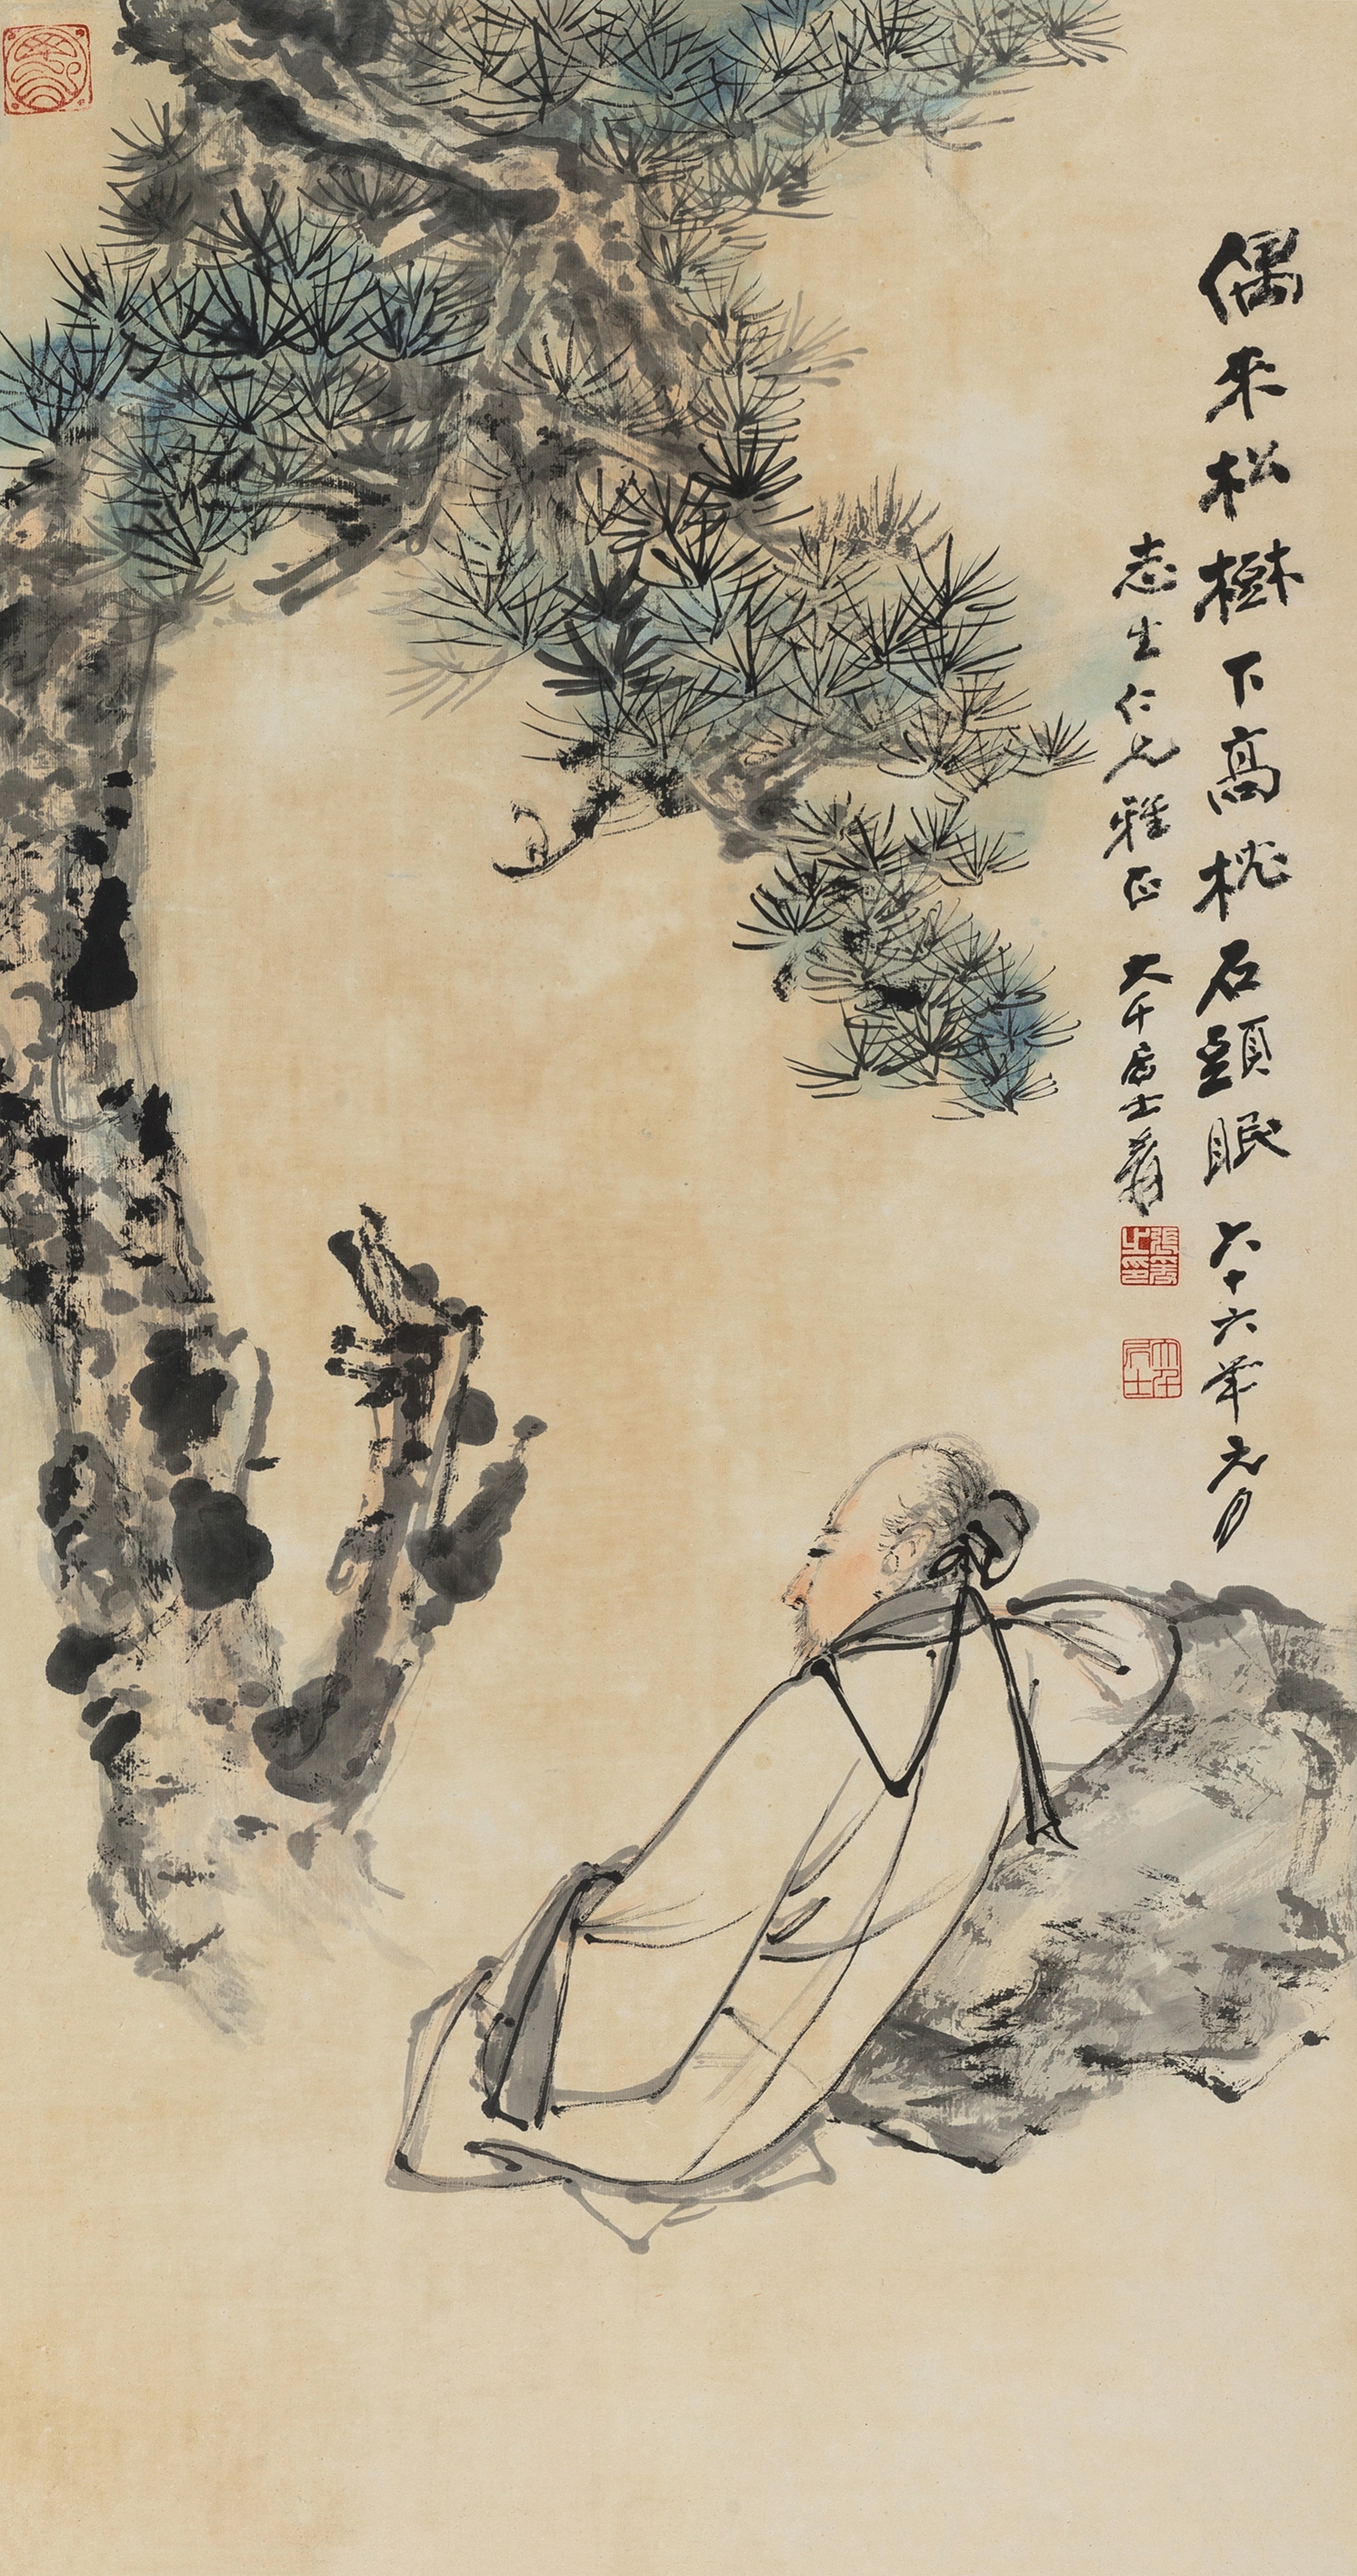 偶來松樹下高枕石頭眠 六十六年元月
志生仁兄雅正 大千居士爰
張爰之印
大千居士